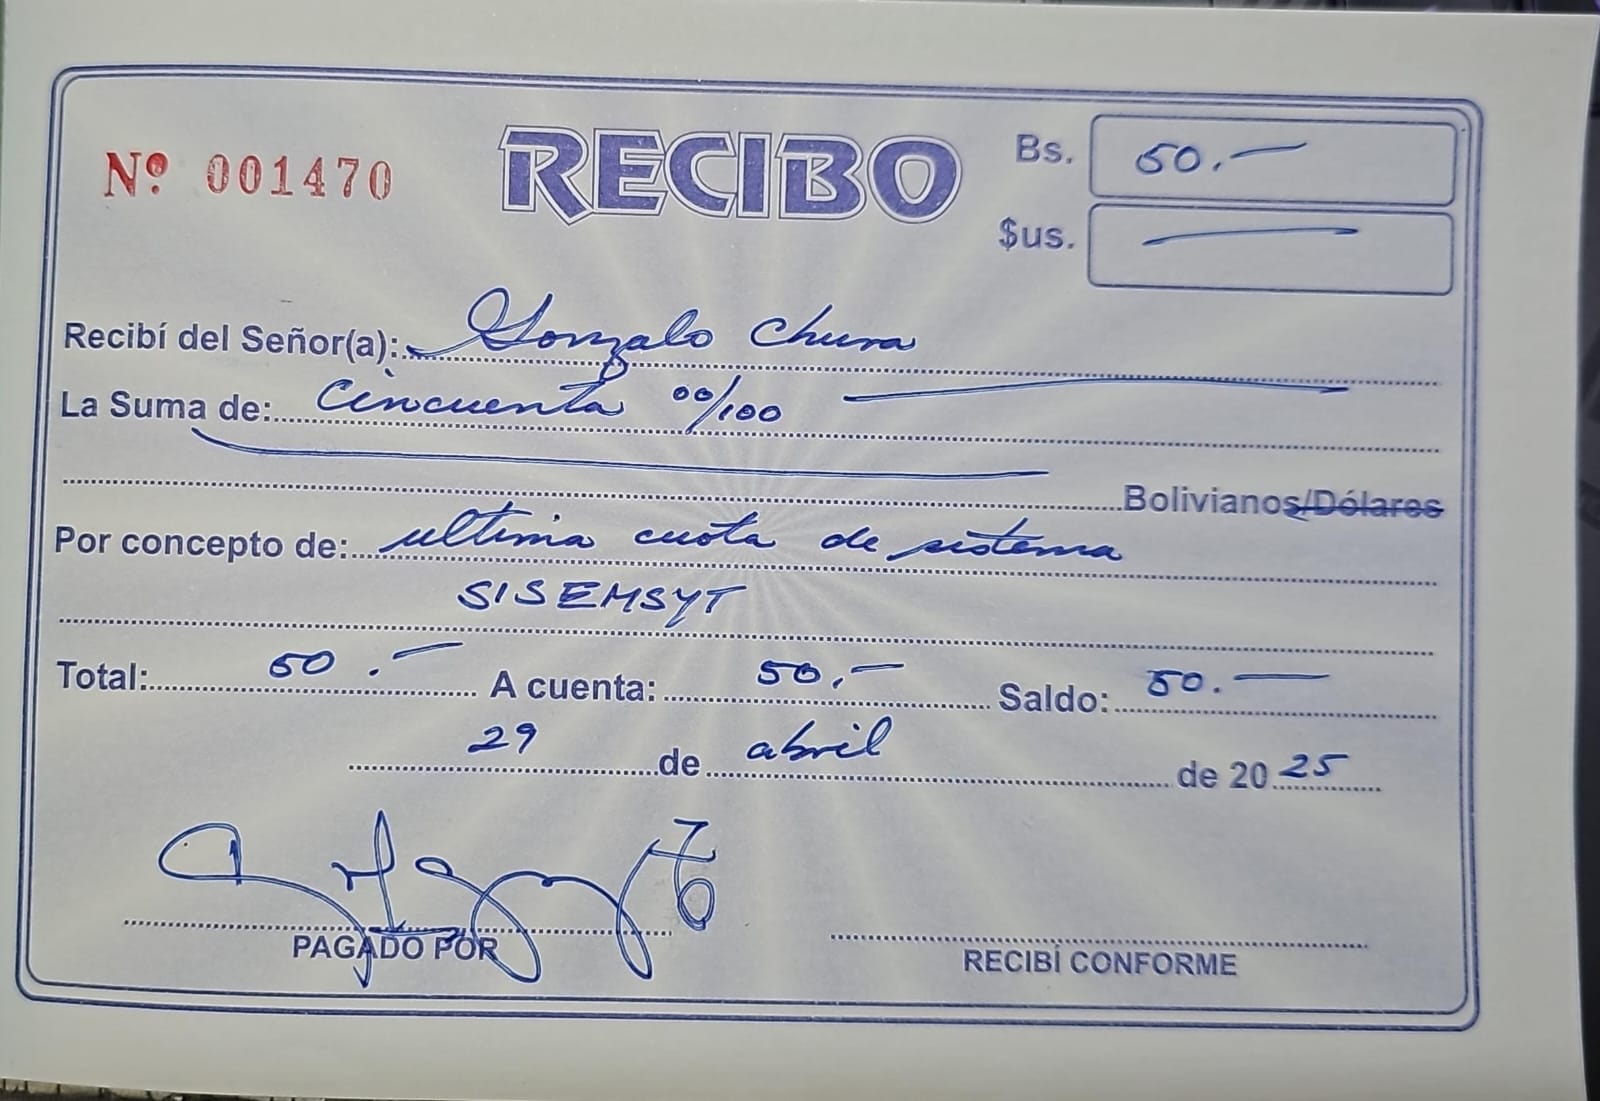 Nº 001470 RECIBO Bs. 50.-
$us. —
Recibí del Señor(a): Gonzalo Chura
La Suma de: Cincuenta 00/100
Bolivianos/Dólares
Por concepto de: ultima cuota de sistema
SISEMSYT
Total: 50.- A cuenta: 50.- Saldo: 50.-
29 de abril de 2025
PAGADO POR RECIBÍ CONFORME